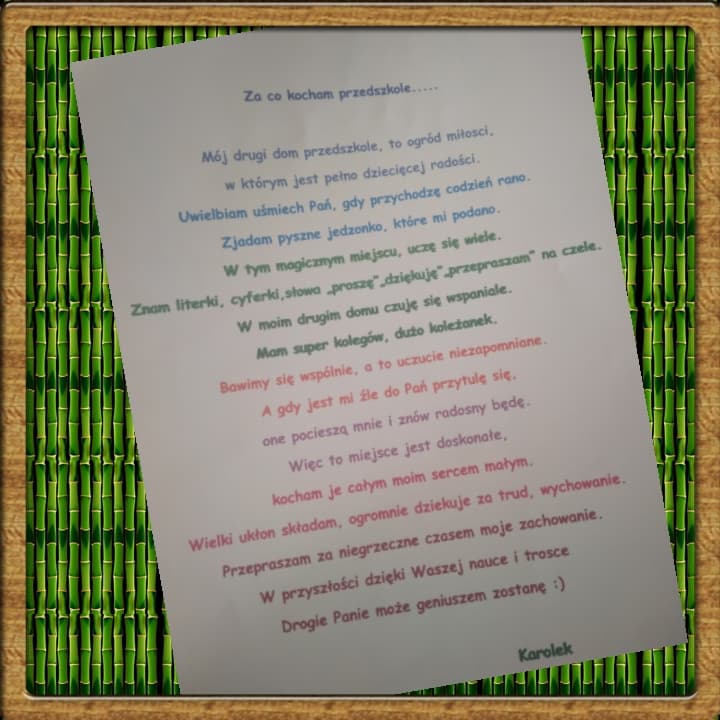 Za co kocham przedszkole.....
Mój drugi dom przedszkole, to ogród miłosci,
w którym jest pełno dziecięcej radości.
Uwielbiam uśmiech Pań, gdy przychodzę codzień rano.
Zjadam pyszne jedzonko, które mi podano.
W tym magicznym miejscu, uczę się wiele.
Znam literki, cyferki,słowa „proszę"„dziękuję"„przepraszam" na czele.
W moim drugim domu czuję się wspaniale.
Mam super kolegów, dużo koleżanek.
Bawimy się wspólnie, a to uczucie niezapomniane.
A gdy jest mi źle do Pań przytulę się,
one pocieszą mnie i znów radosny będę.
Więc to miejsce jest doskonałe,
kocham je całym moim sercem małym.
Wielki ukłon składam, ogromnie dziekuje za trud, wychowanie.
Przepraszam za niegrzeczne czasem moje zachowanie.
W przyszłości dzięki Waszej nauce i trosce
Drogie Panie może geniuszem zostanę :)
Karolek